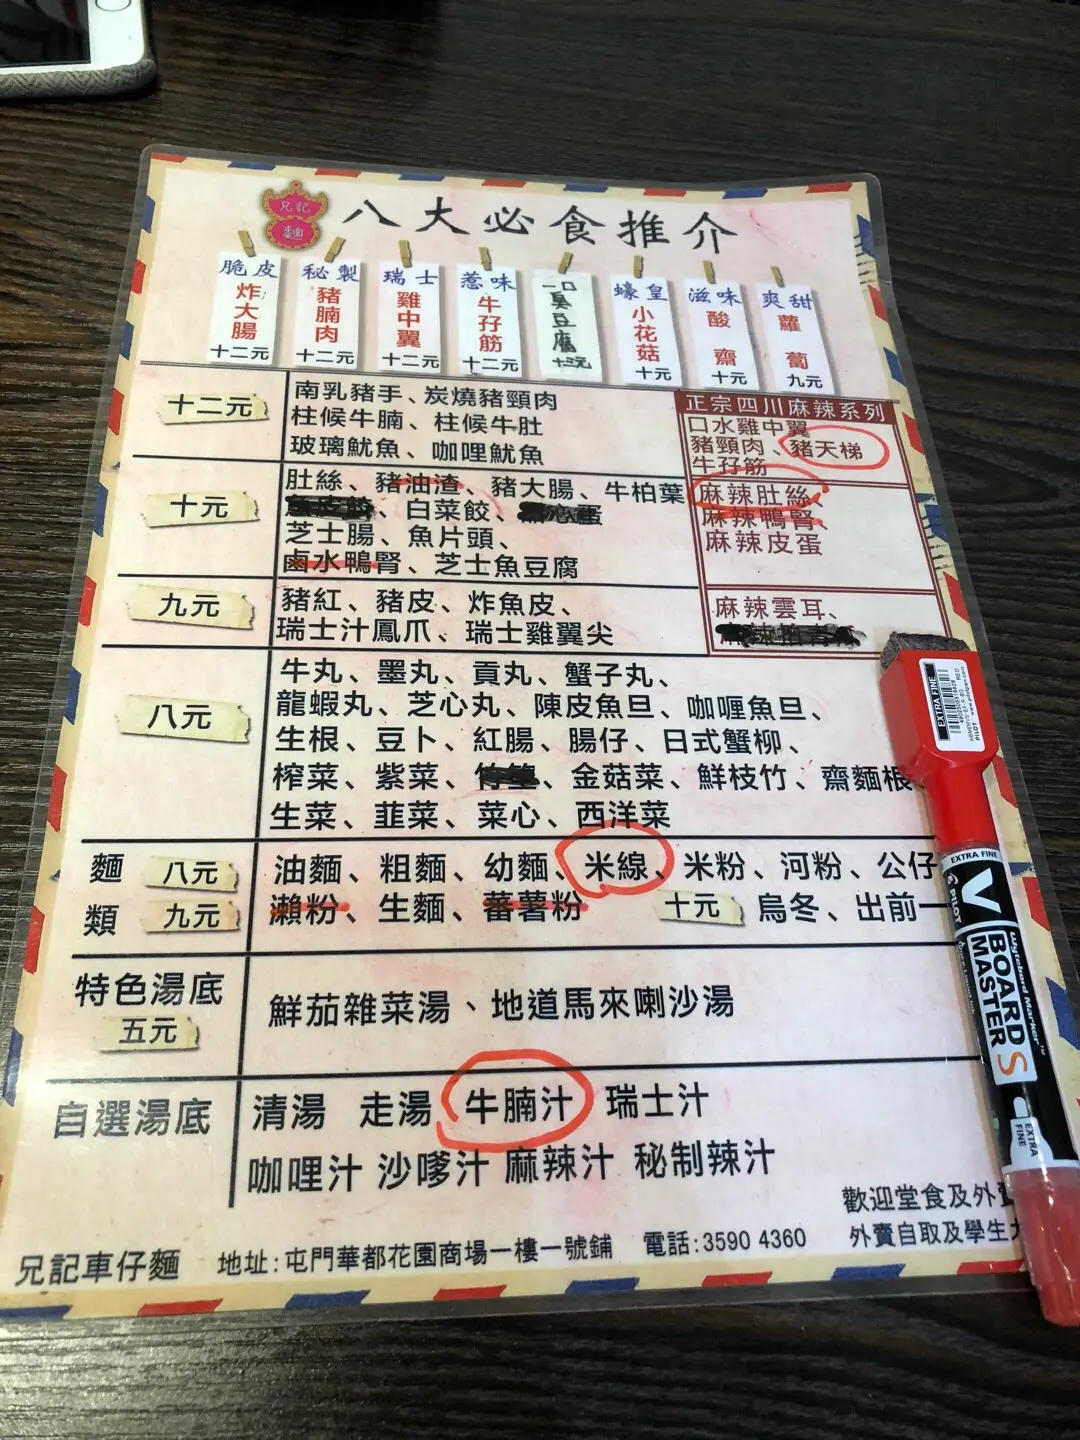 兄記
麵
八大必食推介
脆皮 炸大腸 十二元
秘製 豬腩肉 十二元
瑞士 雞中翼 十二元
惹味 牛孖筋 十二元
一口 臭豆腐 十二元
蠔皇 小花菇 十元
滋味 酸齋 十元
爽甜 蘿蔔 九元
十二元
南乳豬手、炭燒豬頸肉
柱候牛腩、柱候牛肚
玻璃魷魚、咖哩魷魚
正宗四川麻辣系列
口水雞中翼
豬頸肉、豬天梯
牛孖筋
十元
肚絲、豬油渣、豬大腸、牛柏葉
魚皮餃、白菜餃、
芝士腸、魚片頭、
鹵水鴨腎、芝士魚豆腐
麻辣肚絲、
麻辣鴨腎、
麻辣皮蛋
九元
豬紅、豬皮、炸魚皮、
瑞士汁鳳爪、瑞士雞翼尖
麻辣雲耳、
八元
牛丸、墨丸、貢丸、蟹子丸、
龍蝦丸、芝心丸、陳皮魚旦、咖喱魚旦、
生根、豆卜、紅腸、腸仔、日式蟹柳、
榨菜、紫菜、金菇菜、鮮枝竹、齋麵根、
生菜、韮菜、菜心、西洋菜
麵類
八元 油麵、粗麵、幼麵、米線、米粉、河粉、公仔
九元 瀨粉、生麵、蕃薯粉 十元 烏冬、出前一
特色湯底
五元
鮮茄雜菜湯、地道馬來喇沙湯
自選湯底
清湯 走湯 牛腩汁 瑞士汁
咖哩汁 沙嗲汁 麻辣汁 秘制辣汁
歡迎堂食及外賣
外賣自取及學生
兄記車仔麵 地址:屯門華都花園商場一樓一號鋪 電話:3590 4360
EXTRA FINE
PILOT
EXTRA FINE
PILOT
V BOARD MASTER S
Wyteboard Marker
EXTRA FINE